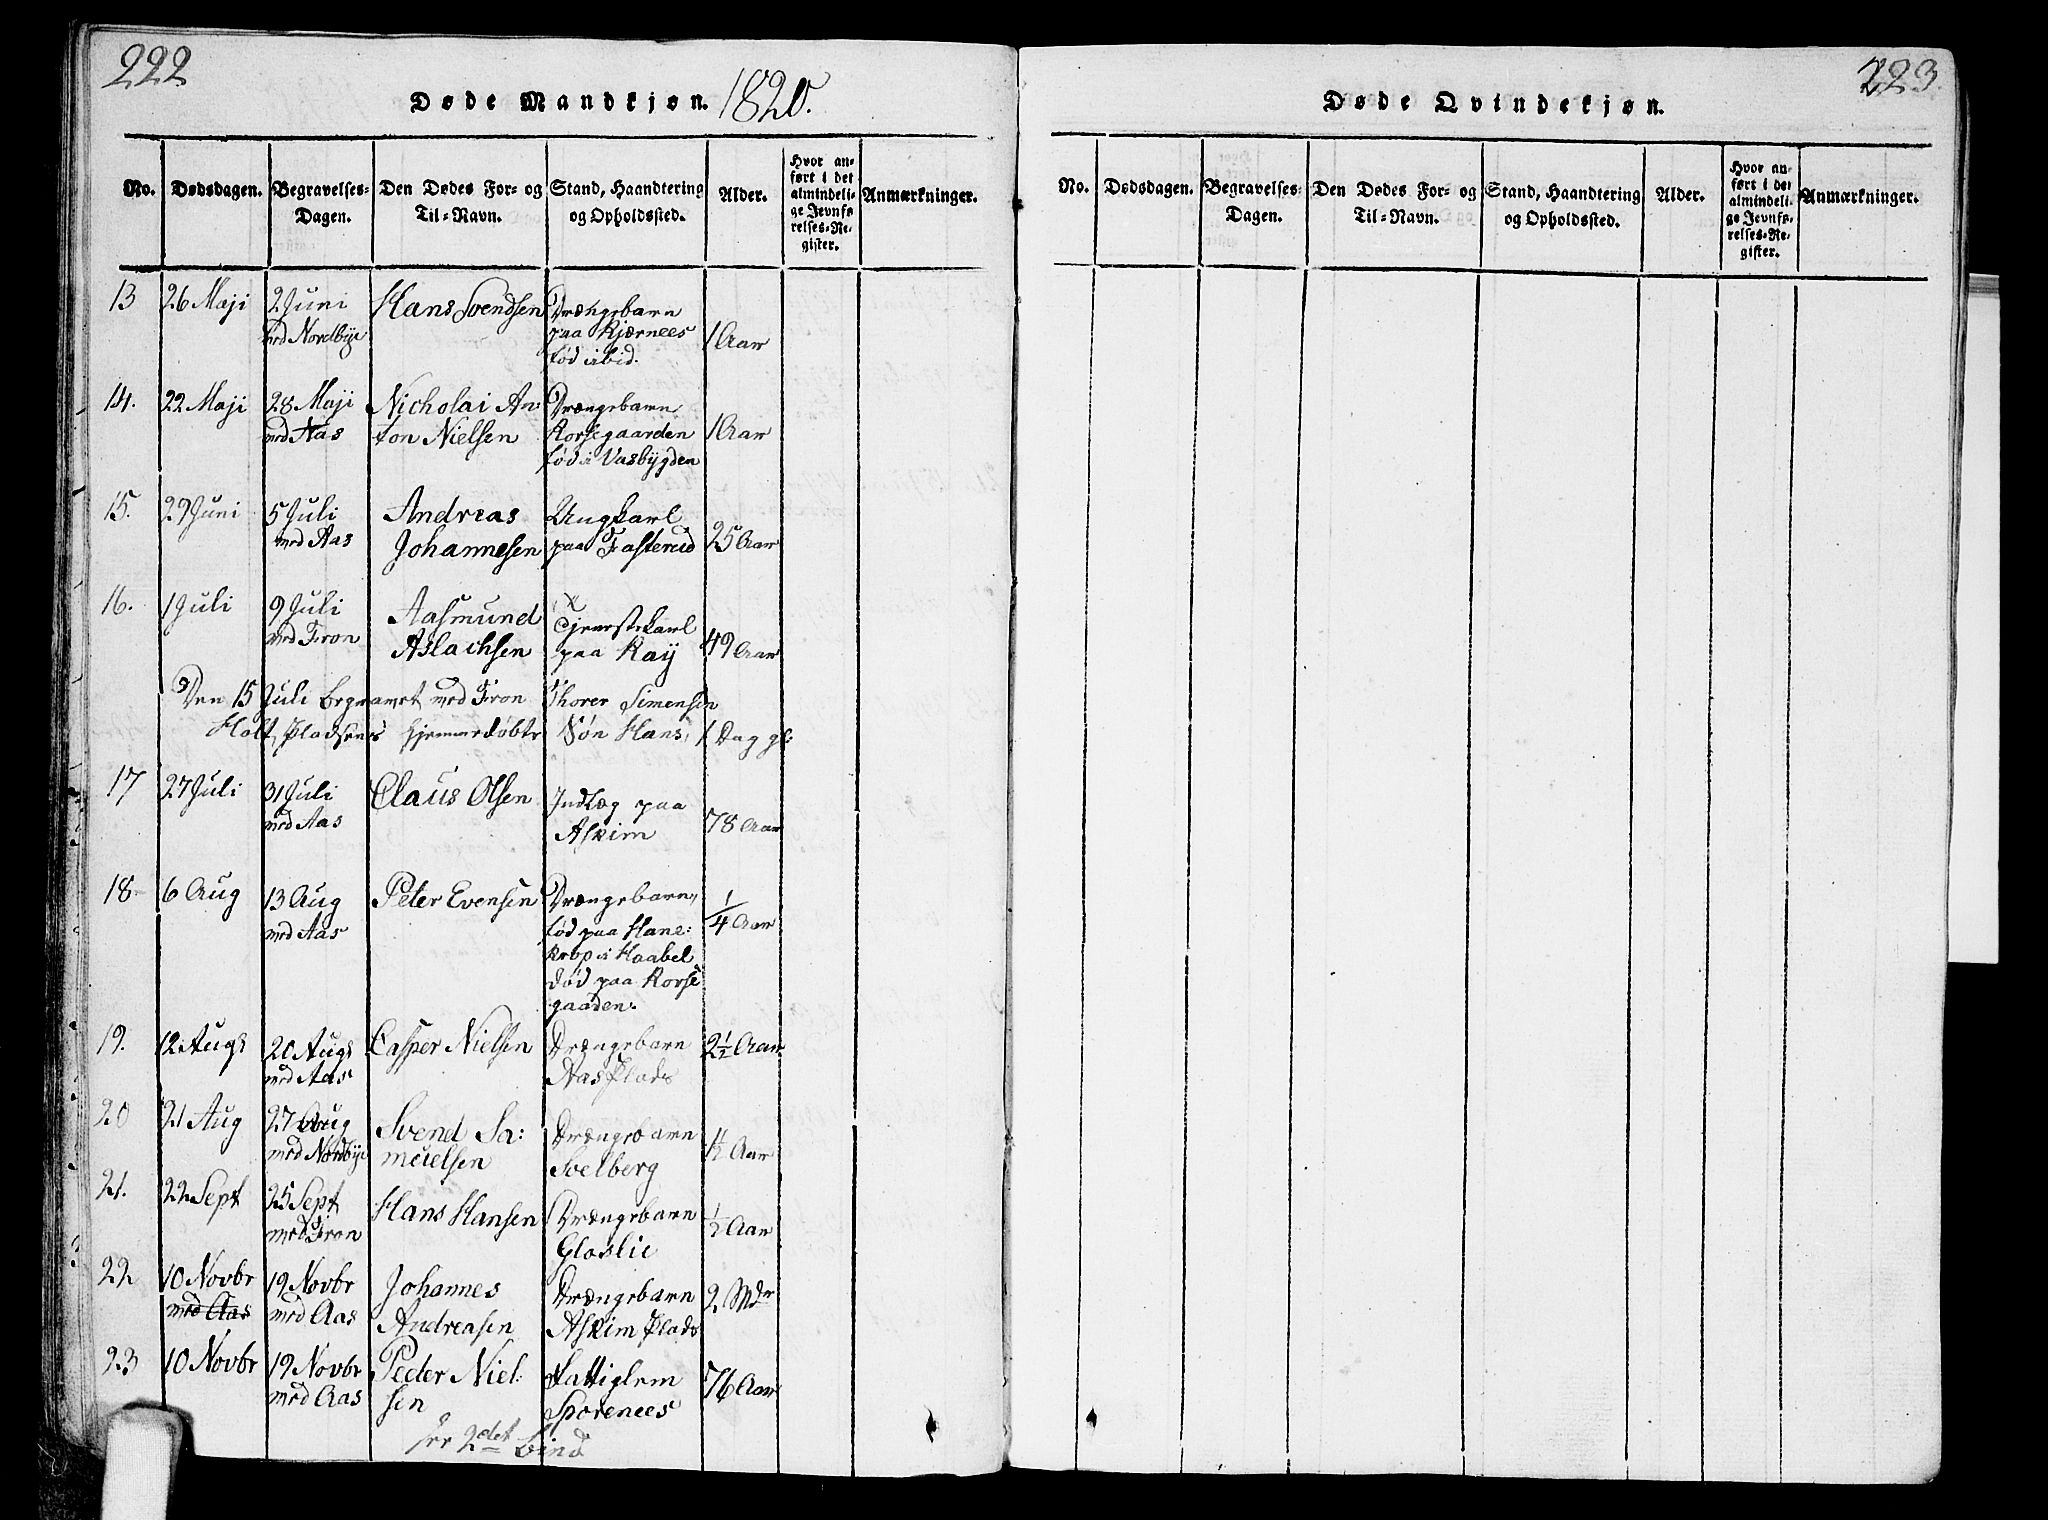 222
Døde Mandkjøn. 1820.
No. Dødsdagen. Begravelses-Dagen. Den Dødes For- og Til-Navn. Stand, Haandtering og Opholdssted. Alder. Hvor anført i det almindelige Jevnførelses-Register. Anmærkninger.
13 26 Maji 2 Juni Hans Svendsen Drængebarn
ved Nordbye paa Kjærnees 1 Aar
fød ibid.
14. 22 Maji 28 Maji Nicholai An- Drængebarn
ved Aas ton Nielsen Korsegaarden 1 Aar
fød i Vasbygden
15. 29 Juni 5 Juli Andreas Ungkarl
ved Aas Johannesen paa Fasterud 25 Aar
16. 1 Juli 9 Juli Aasmund Tjenestekarl
ved Fron Aslachsen paa Kay 49 Aar
Den 15 Juli begravet ved Fron Thorer Simensen
Holt Pladsens hjemmedøbte Søn Hans, 1 Dag gl:
17 27 Juli 31 Juli Claus Olsen Indlæg paa
ved Aas Askim 78 Aar
18 6 Aug 13 Aug Peter Evensen Drængebarn, 1/4 Aar
ved Aas fød paa Hane:
krop i Haabel
død paa Korse
gaaden.
19. 12 Augs 20 Augs Casper Nielsen Drængebarn 2 1/2 Aar
ved Aas Aas Plads
20 21 Aug 27 Aug Svend Sa: Drængebarn
ved Nordbye muelsen Solberg 1/2 Aar
21. 22 Sept 25 Sept Hans Hansen Drængebarn 1/2 Aar
ved Fron Gloslie
22 10 Novbr 19 Novbr Johannes Drængebarn 2 Mdr
ved Aas ved Aas Andreasen Askim Plads
23 10 Novbr 19 Novbr Peder Niel: Fattiglem 76 Aar
ved Aas sen Sporenees
see 2det bind
223.
Døde Qvindekjøn.
No. Dødsdagen. Begravelses-Dagen. Den Dødes For- og Til-Navn. Stand, Haandtering og Opholdssted. Alder. Hvor anført i det almindelige Jevnførelses-Register. Anmærkninger.